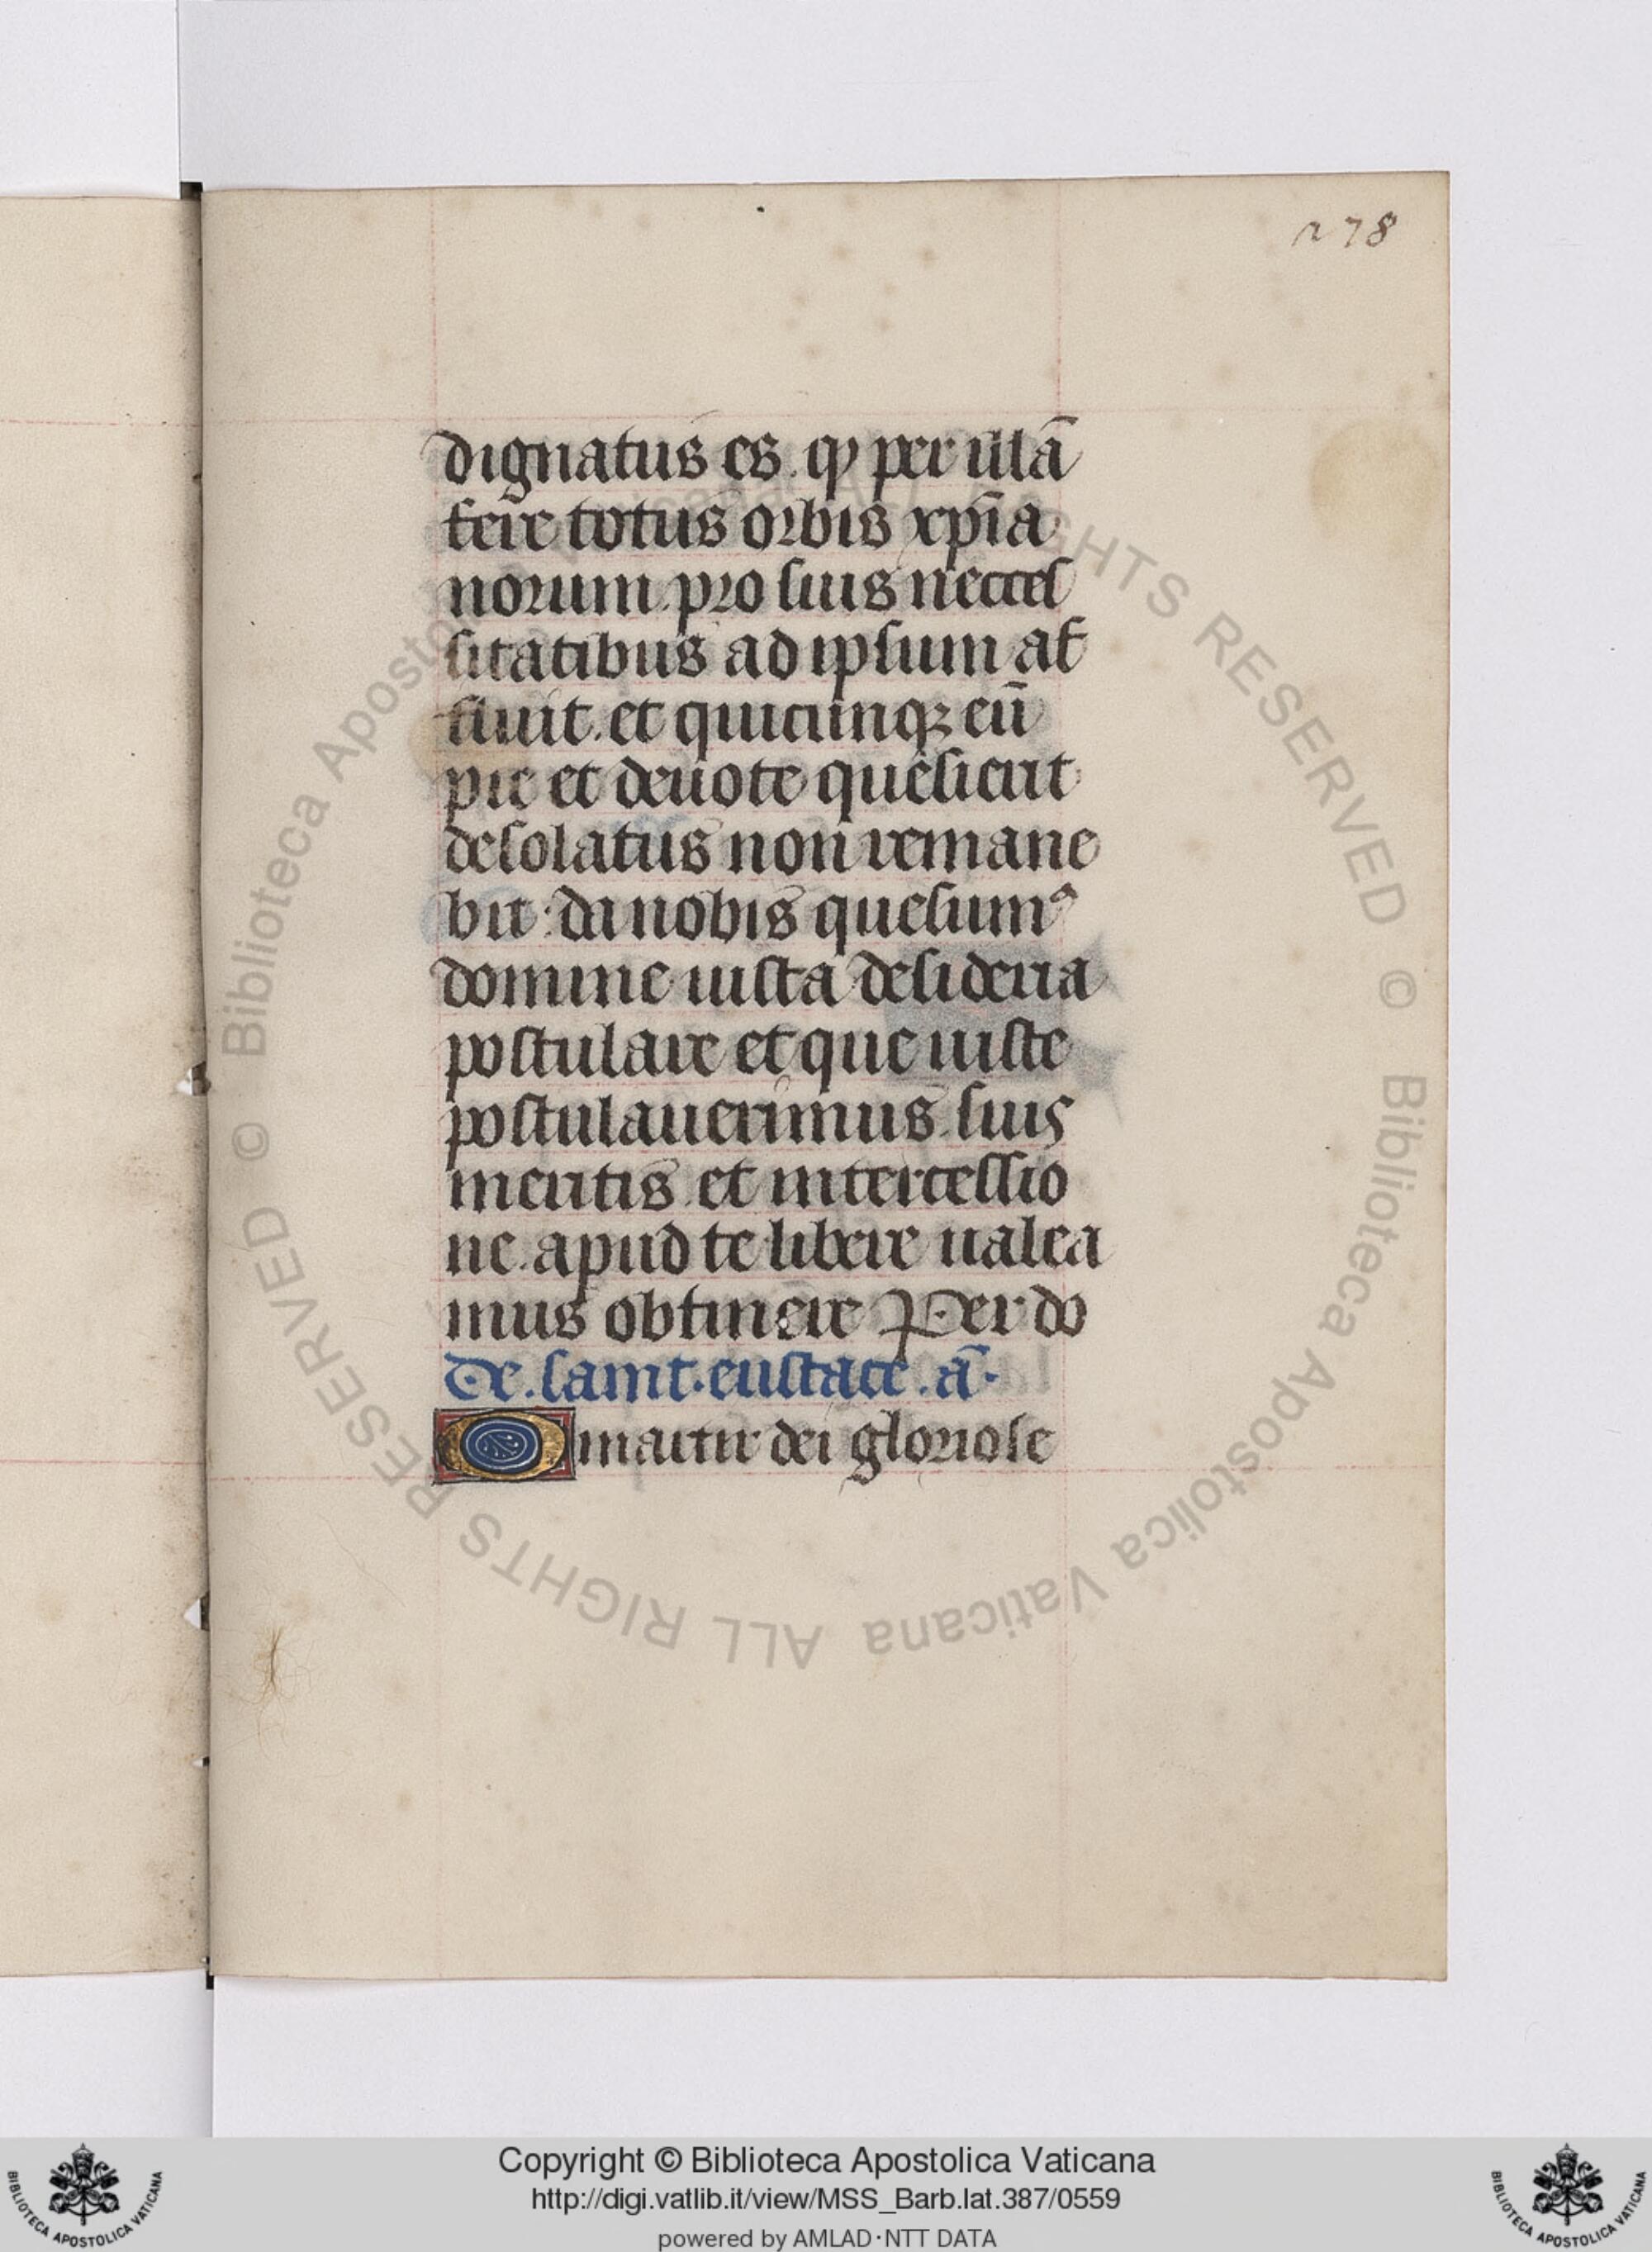 278
dignatus es. ꝙ per illā
fere totus orbis xp̄ia
norum. pro suis necces
sitatibus ad ipsum af
fluit. et quicunqꝫ eū
pie et deuote quesierit
desolatus non remane
bit: da nobis quesumꝰ
domine iusta desideria
postulare et que iuste
postulauerimus. suis
meritis. et intercessio
ne. apud te libere ualea
mus obtinere Per do
De. saint. eustace. ā.
O martir dei gloriose
© Biblioteca Apostolica Vaticana ALL RIGHTS RESERVED © Biblioteca Apostolica Vaticana ALL RIGHTS RESERVED
Copyright © Biblioteca Apostolica Vaticana
http://digi.vatlib.it/view/MSS_Barb.lat.387/0559
powered by AMLAD·NTT DATA
BIBLIOTECA APOSTOLICA VATICANA
BIBLIOTECA APOSTOLICA VATICANA